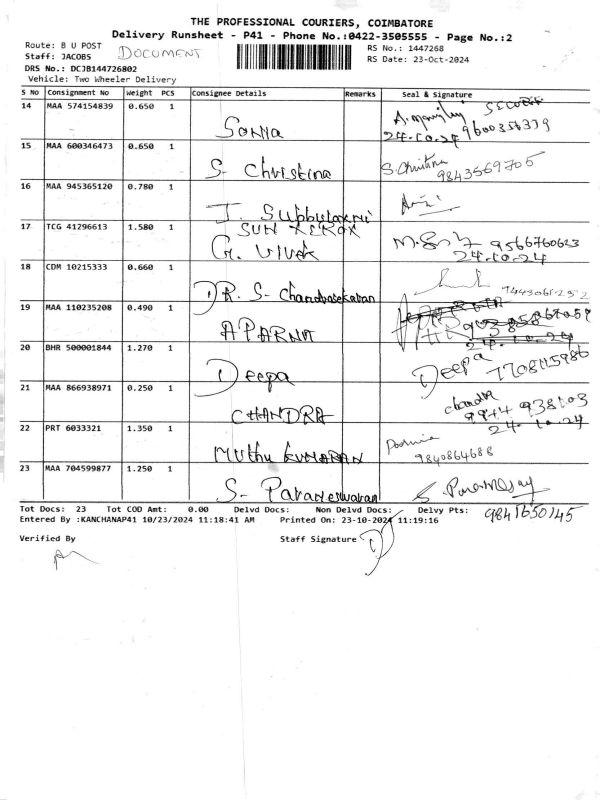 THE PROFESSIONAL COURIERS, COIMBATORE
Delivery Runsheet - P41 - Phone No.:0422-3505555 - Page No.:2
Route: B U POST
DOCUMENT
RS No.: 1447268
Staff: JACOB5
RS Date: 23-Oct-2024
DRS No.: DCJB144726802
Vehicle: Two Wheeler Delivery
S No Consignment No Weight PCS Consignee Details Remarks Seal & Signature
14 MAA 574154839 0.650 1
Sonna
24.10.24 9600356339
15 MAA 600346473 0.650 1
S. Christina S. Christina
9843569705
16 MAA 945365120 0.780 1
J. Subbulaxmi
17 TCG 41296613 1.580 1 SUN XEROX
G. Vivek 9566760623
24.10.24
18 CDM 10215333 0.660 1
DR. S. Chandrasekaran
19 MAA 110235208 0.490 1
APARNA
24.10.24
20 BHR 500001844 1.270 1
Deepa Deepa 7708115986
21 MAA 866938971 0.250 1 chandra
CHANDRA 9944 938103
24.10.24
22 PRT 6033321 1.350 1
MUTHU KUMARAN 9840864688
23 MAA 704599877 1.250 1
S. Parameswaran
Tot Docs: 23 Tot COD Amt: 0.00 Delvd Docs: Non Delvd Docs: Delvy Pts: 9841650145
Entered By :KANCHANAP41 10/23/2024 11:18:41 AM Printed On: 23-10-2024 11:19:16
Verified By Staff Signature